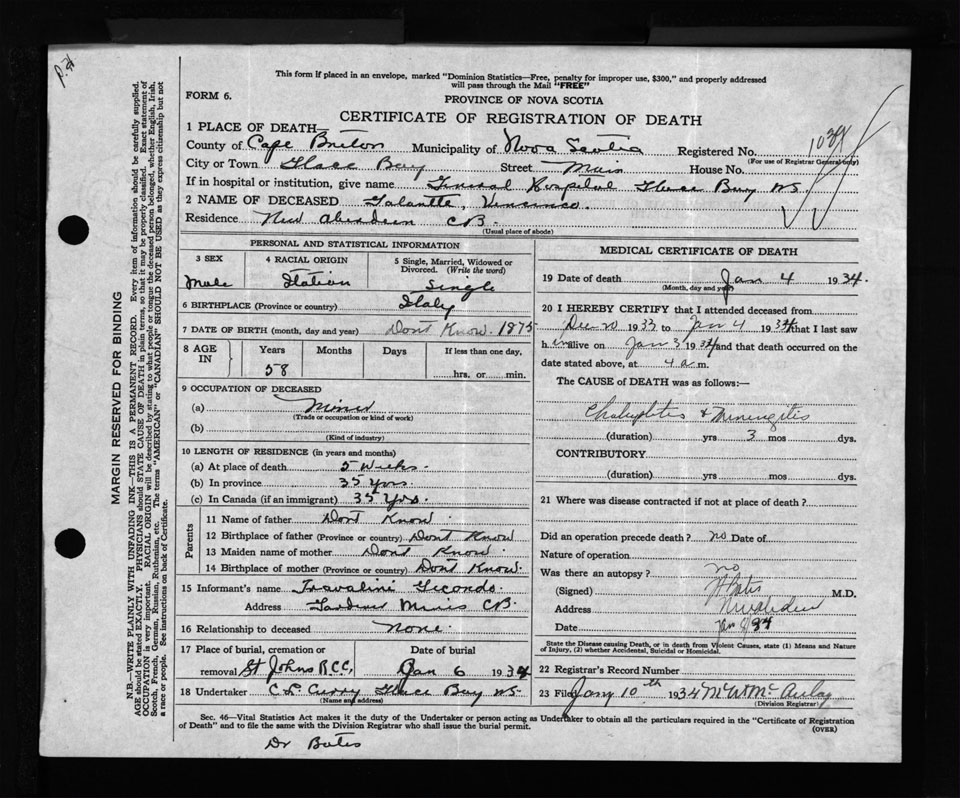 This form if placed in an envelope, marked "Dominion Statistics—Free, penalty for improper use, $300," and properly addressed
will pass through the Mail "FREE"
FORM 6.
PROVINCE OF NOVA SCOTIA
CERTIFICATE OF REGISTRATION OF DEATH
1 PLACE OF DEATH—
County of Cape Breton Municipality of Nova Scotia Registered No.
(For use of Registrar General only)
City or Town Glace Bay Street Main House No.
If in hospital or institution, give name General Hospital Glace Bay NS.
2 NAME OF DECEASED Galantte, Vincenzo.
Residence New Aberdeen CB.
(Usual place of abode)
PERSONAL AND STATISTICAL INFORMATION
3 SEX
Male
4 RACIAL ORIGIN
Italian
5 Single, Married, Widowed or
Divorced. (Write the word)
Single
6 BIRTHPLACE (Province or country) Italy
7 DATE OF BIRTH (month, day and year) Dont Know. 1875
8 AGE
IN
Years
58
Months
Days
If less than one day,
hrs. or min.
9 OCCUPATION OF DECEASED
(a) Miner
(Trade or occupation or kind of work)
(b)
(Kind of industry)
10 LENGTH OF RESIDENCE (in years and months)
(a) At place of death 5 Weeks.
(b) In province 35 Yrs.
(c) In Canada (if an immigrant) 35 Yrs.
Parents
11 Name of father Dont Know.
12 Birthplace of father (Province or country) Dont Know
13 Maiden name of mother Dont Know.
14 Birthplace of mother (Province or country) Dont Know.
15 Informant's name Travalini Secondo
Address Gardiner Mines CB.
16 Relationship to deceased None.
17 Place of burial, cremation or
removal St Johns R.C.C. Jan 6 1934
18 Undertaker C. L. Curry Glace Bay NS.
(Name and address)
MEDICAL CERTIFICATE OF DEATH
19 Date of death Jan 4 1934.
(Month, day and year)
20 I HEREBY CERTIFY that I attended deceased from
Dec 20 1933 to Jan 4 1934 that I last saw
h im alive on Jan 3 1934 and that death occurred on the
date stated above, at 4 a m.
The CAUSE of DEATH was as follows:—
& Meningitis
(duration) yrs 3 mos dys.
CONTRIBUTORY
(duration) yrs. mos dys.
21 Where was disease contracted if not at place of death?
Did an operation precede death? no Date of
Nature of operation
Was there an autopsy? no
(Signed) Bates M.D.
Address
Date Jan 34
State the Disease causing Death, or in death from Violent Causes, state (1) Means and Nature
of Injury, (2) whether Accidental, Suicidal or Homicidal.
22 Registrar's Record Number
23 Filed Jany 10th 1934 McAulay
(Division Registrar)
Sec. 46—Vital Statistics Act makes it the duty of the Undertaker or person acting as Undertaker to obtain all the particulars required in the "Certificate of Registration
of Death" and to file the same with the Division Registrar who shall issue the burial permit.
(OVER)
Dr Bates
MARGIN RESERVED FOR BINDING
N.B.—WRITE PLAINLY WITH UNFADING INK—THIS IS A PERMANENT RECORD. Every item of information should be carefully supplied.
AGE should be stated EXACTLY. PHYSICIANS should STATE CAUSE OF DEATH in plain terms, so that it may be properly classified. Exact statement of
OCCUPATION is very important. RACIAL ORIGIN will be described by stating to what people or tongue the deceased person belonged, whether English, Irish,
Scotch, French, German, Russian, Ruthenian, etc. The terms "AMERICAN" or "CANADIAN" SHOULD NOT BE USED as they express citizenship but not
a race or people. See instructions on back of Certificate.